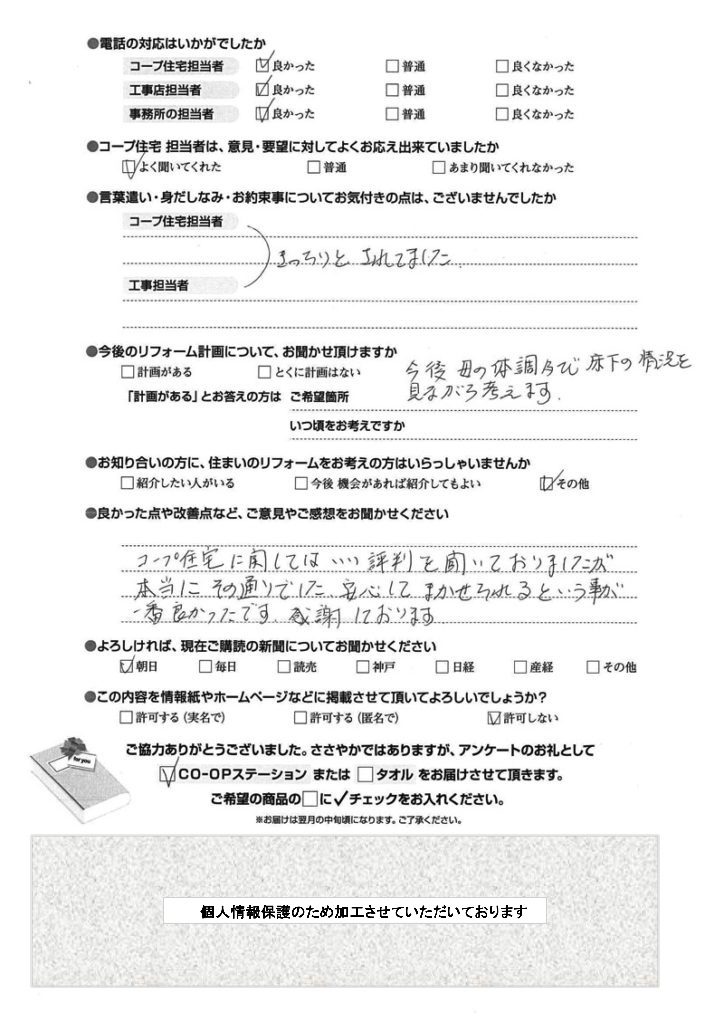 ●電話の対応はいかがでしたか
コープ住宅担当者 ☑良かった □普通 □良くなかった
工事店担当者 ☑良かった □普通 □良くなかった
事務所の担当者 ☑良かった □普通 □良くなかった
●コープ住宅 担当者は、意見・要望に対してよくお応え出来ていましたか
☑よく聞いてくれた □普通 □あまり聞いてくれなかった
●言葉遣い・身だしなみ・お約束事についてお気付きの点は、ございませんでしたか
コープ住宅担当者
きっちりと されてました.
工事担当者
●今後のリフォーム計画について、お聞かせ頂けますか
□計画がある □とくに計画はない
今後 母の体調及び 床下の情況を
見ながら考えます.
「計画がある」とお答えの方は ご希望箇所
いつ頃をお考えですか
●お知り合いの方に、住まいのリフォームをお考えの方はいらっしゃいませんか
□紹介したい人がいる □今後 機会があれば紹介してもよい ☑その他
●良かった点や改善点など、ご意見やご感想をお聞かせください
コープ住宅に関してはいい評判を聞いておりましたが
本当に その通りでした. 安心して まかせられるという事が
一番良かったです. 感謝しております
●よろしければ、現在ご購読の新聞についてお聞かせください
☑朝日 □毎日 □読売 □神戸 □日経 □産経 □その他
●この内容を情報紙やホームページなどに掲載させて頂いてよろしいでしょうか?
□許可する(実名で) □許可する(匿名で) ☑許可しない
for you
ご協力ありがとうございました。ささやかではありますが、アンケートのお礼として
☑CO-OPステーション または □タオル をお届けさせて頂きます。
ご希望の商品の□に✓チェックをお入れください。
※お届けは翌月の中旬頃になります。ご了承ください。
個人情報保護のため加工させていただいております